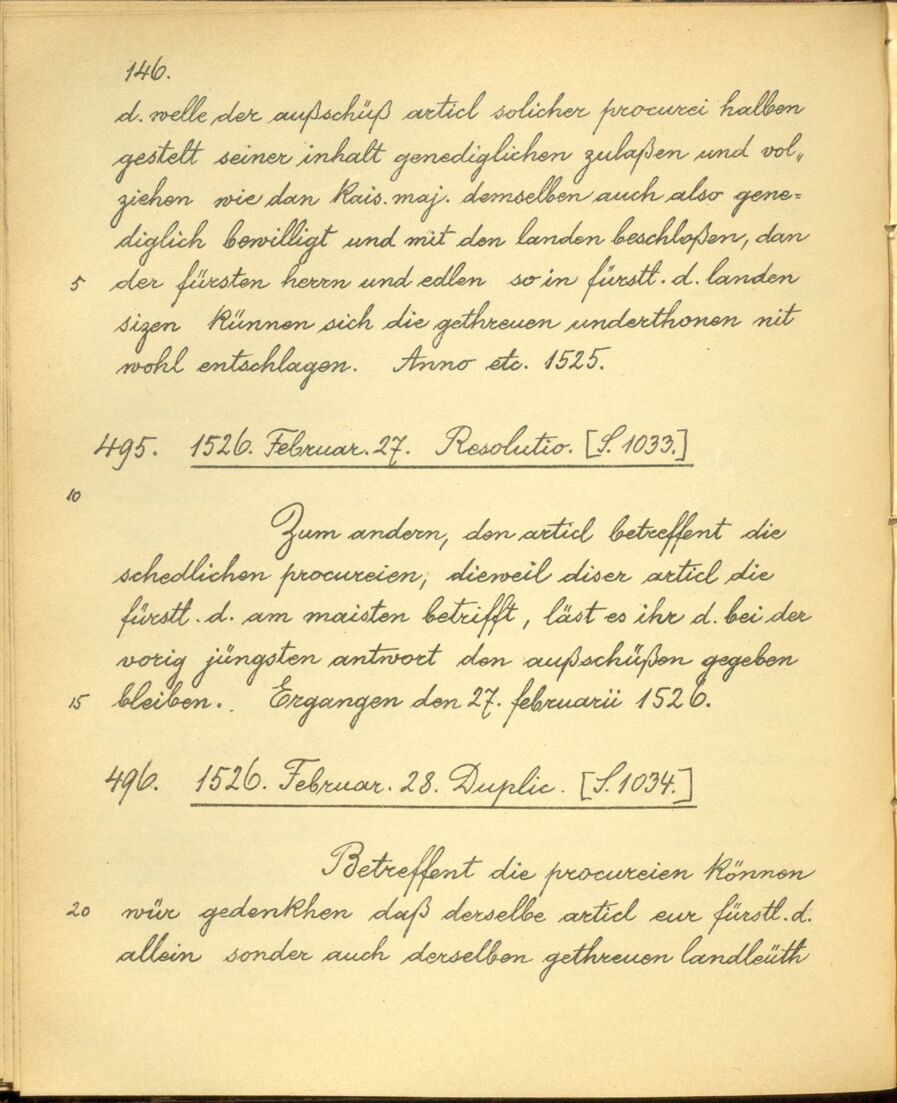 146.
d. welle der außschüß articl solicher procurei halben
gestelt seiner inhalt genediglichen zulaßen und vol„
ziehen wie dan kais. maj. demselben auch also gene=
diglich bewilligt und mit den landen beschloßen, dan
5 der fürsten herrn und edlen so in fürstl. d. landen
sizen künnen sich die gethreuen underthonen nit
wohl entschlagen. Anno etc. 1525.
495. 1526. Februar. 27. Resolutio. [S. 1033.]
10
Zum andern, den articl betreffent die
schedlichen procureien, dieweil diser articl die
fürstl. d. am maisten betrifft, läst es ihr d. bei der
vorig jüngsten antwort den außschüßen gegeben
15 bleiben. Ergangen den 27. februarii 1526.
496. 1526. Februar. 28. Duplic. [S. 1034.]
Betreffent die procureien können
20 wür gedenkhen daß derselbe articl eur fürstl. d.
allein sonder auch derselben gethreuen landleüth